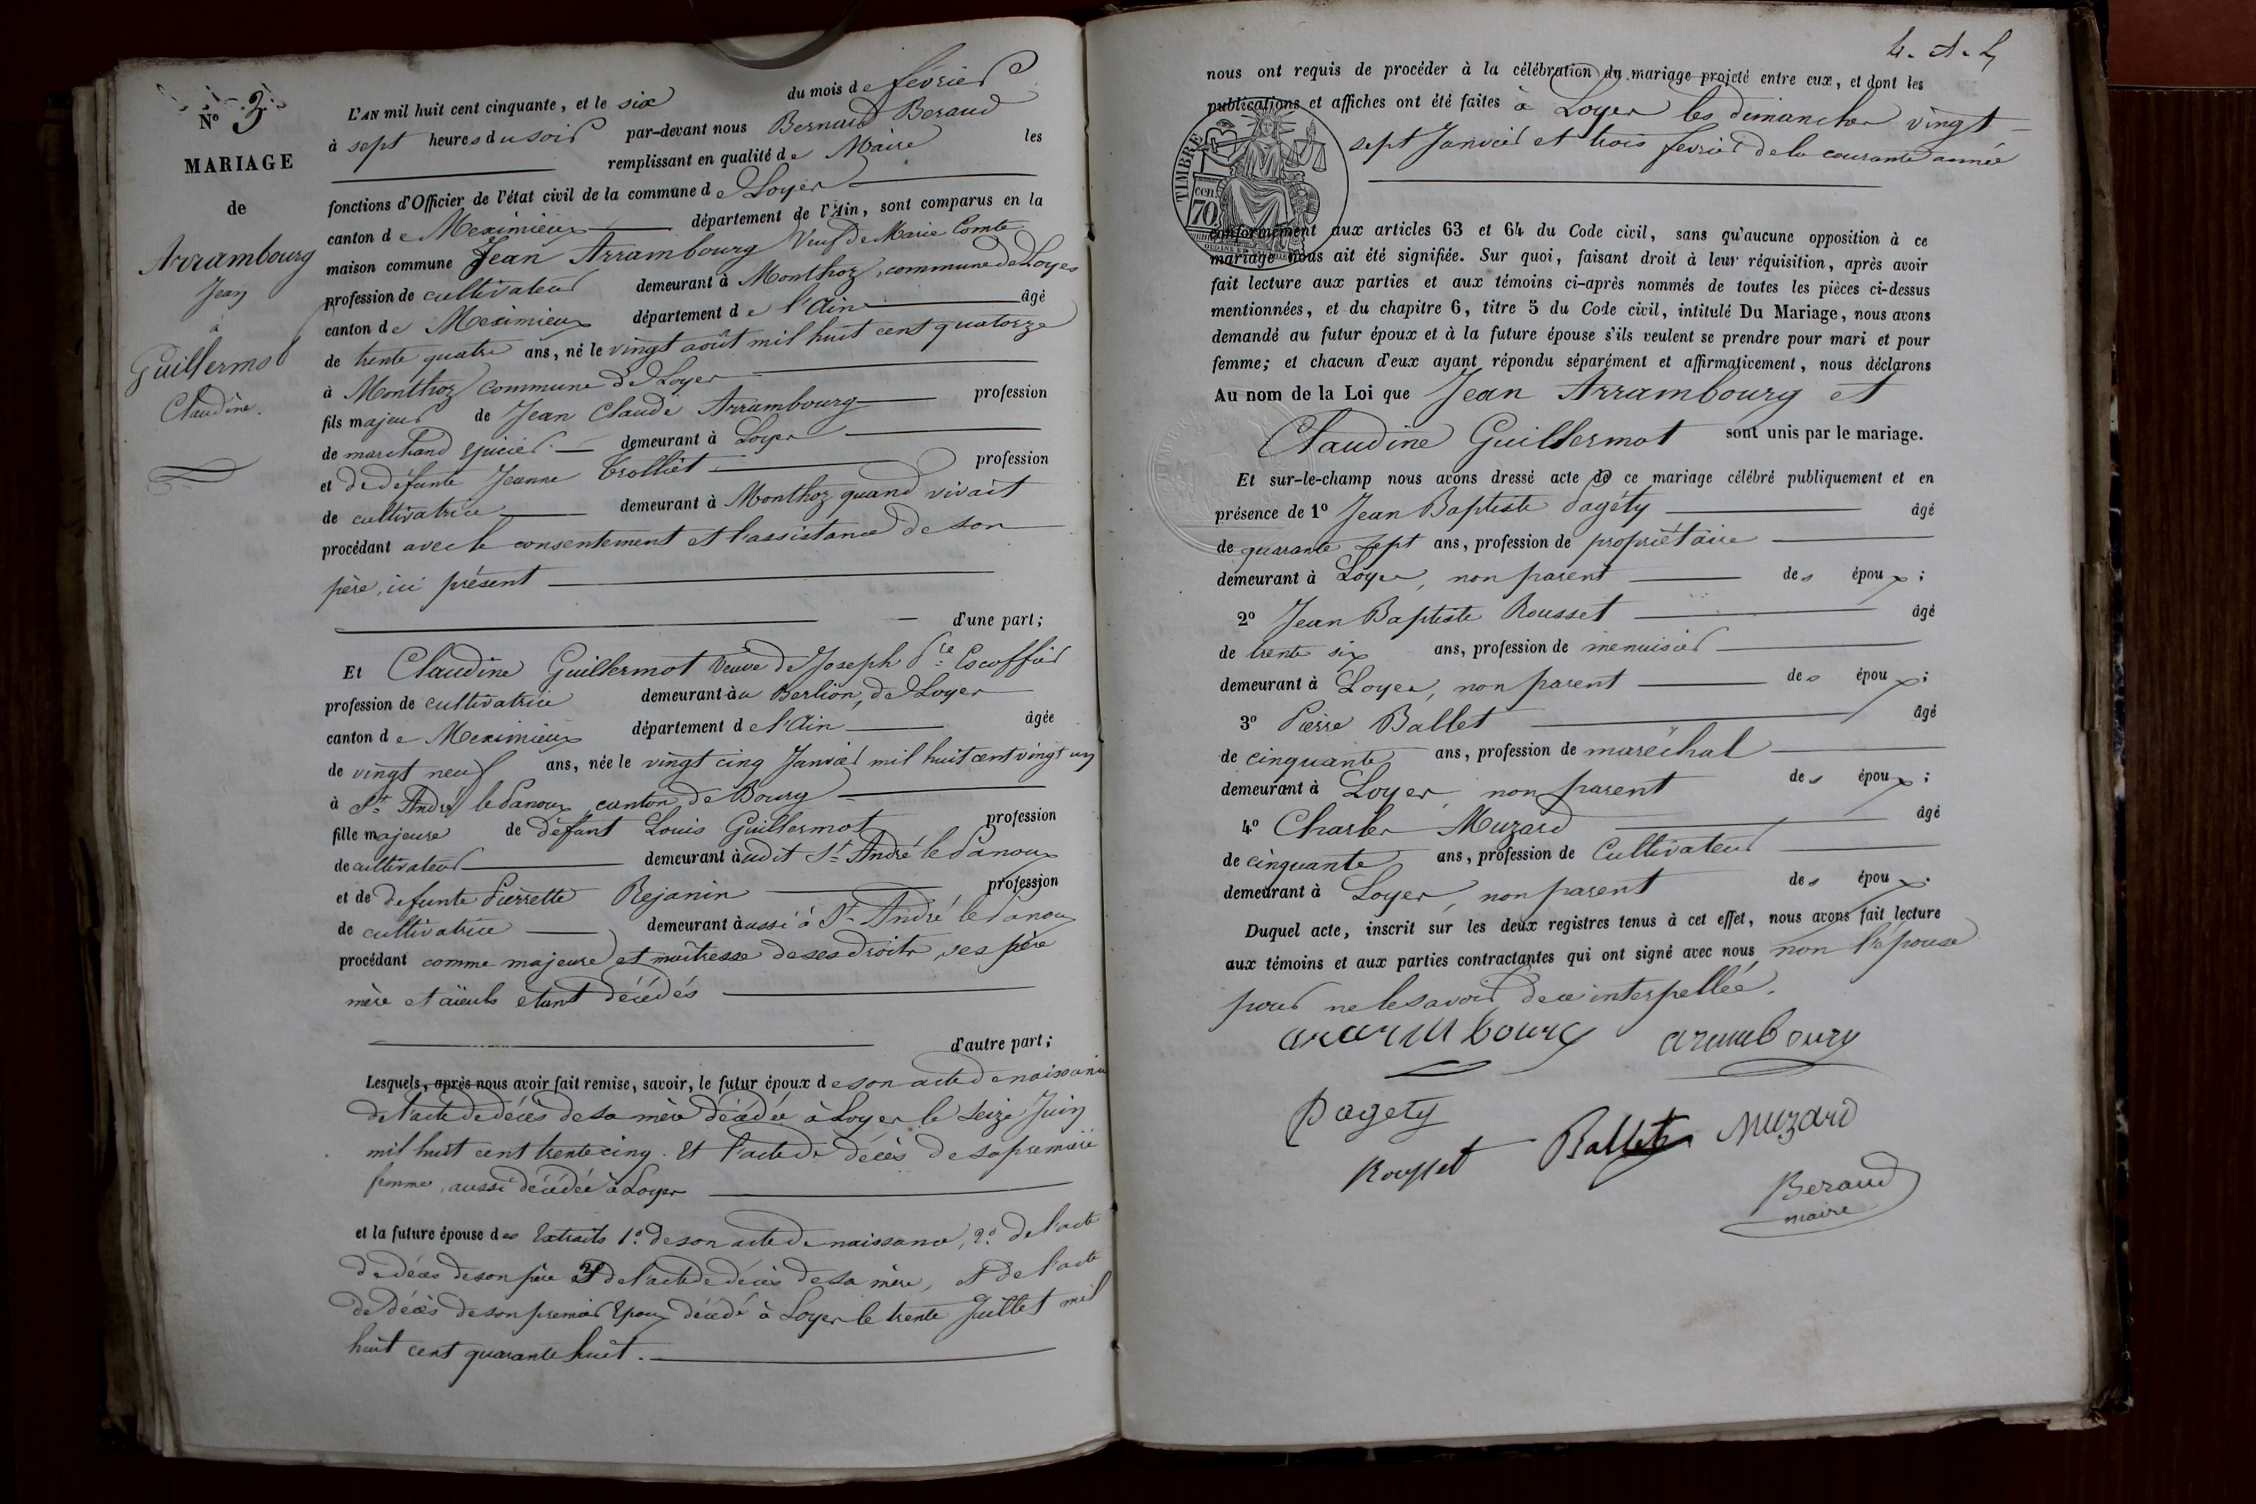 N° 3.
MARIAGE
de
Arrambourg
Jean
à
Guillermot
Claudine.
L'AN mil huit cent cinquante, et le six du mois de février
à sept heures du soir par-devant nous Bernard Beraud
remplissant en qualité de Maire les
fonctions d'Officier de l'état civil de la commune de Loyes
canton de Meximieux département de l'Ain, sont comparus en la
maison commune Jean Arrambourg Veuf de Marie Comte
profession de cultivateur demeurant à Monthoz, commune de Loyes
canton de Meximieux département de l'Ain âgé
de trente quatre ans, né le vingt août mil huit cent quatorze
à Monthoz commune de Loyes
fils majeur de Jean Claude Arrambourg profession
de marchand epicier. demeurant à Loyes
et de défunte Jeanne Trolliet profession
de cultivatrice demeurant à Monthoz quand vivait
procédant avec le consentement et l'assistance de son
père, ici présent
d'une part;
Et Claudine Guillermot veuve de Joseph Escoffier
profession de cultivatrice demeurant au Berlion, de Loyes
canton de Meximieux département de l'Ain âgée
de vingt neuf ans, née le vingt cinq Janvier mil huit cent vingt un
à St. André le Panoux canton de Bourg
fille majeure de défunt Louis Guillermot profession
de cultivateur demeurant audit St. André le Panoux
et de defunte Pierrette Rejanin profession
de cultivatrice demeurant aussi à St. André le Panoux
procédant comme majeure et maîtresse de ses droits, ses père
mère et aïeuls etant décédés
d'autre part;
Lesquels, après nous avoir fait remise, savoir, le futur époux de son acte de naissance
de l'acte de décès de sa mère décédée à Loyes le seize Juin
mil huit cent trente cinq. Et l'acte de décès de sa premiere
femme, aussi décédée à Loyes
et la future épouse des Extraits 1° de son acte de naissance, 2° de l'acte
de décès de son père de l'acte de décès de sa mère, et de l'acte
de décès de son premier Epoux décédé à Loyes le trente Juillet mil
huit cent quarante huit.
nous ont requis de procéder à la célébration du mariage projeté entre eux, et dont les
publications et affiches ont été faites à Loyes les dimanches vingt
sept Janvier et trois fevrier de la courante année
TIMBRE
cen
70
conformément aux articles 63 et 64 du Code civil, sans qu'aucune opposition à ce
mariage nous ait été signifiée. Sur quoi, faisant droit à leur réquisition, après avoir
fait lecture aux parties et aux témoins ci-après nommés de toutes les pièces ci-dessus
mentionnées, et du chapitre 6, titre 5 du Code civil, intitulé Du Mariage, nous avons
demandé au futur époux et à la future épouse s'ils veulent se prendre pour mari et pour
femme; et chacun d'eux ayant répondu séparément et affirmativement, nous déclarons
Au nom de la Loi que Jean Arrambourg et
Claudine Guillermot sont unis par le mariage.
Et sur-le-champ nous avons dressé acte de ce mariage célébré publiquement et en
présence de 1° Jean Baptiste Pagéty âgé
de quarante sept ans, profession de propriétaire
demeurant à Loyes, non parent des époux;
2° Jean Baptiste Rousset âgé
de trente six ans, profession de menuisier
demeurant à Loyes, non parent des époux;
3° Pierre Ballet âgé
de cinquante ans, profession de maréchal
demeurant à Loyes, non parent des époux;
4° Charles Muzard âgé
de cinquante ans, profession de Cultivateur
demeurant à Loyes, non parent des époux.
Duquel acte, inscrit sur les deux registres tenus à cet effet, nous avons fait lecture
aux témoins et aux parties contractantes qui ont signé avec nous non l'épouse
pour ne le savoir de ce interpellée.
ararmbourg arambourg
Pagety
Rousset Ballet Muzard
Beraud
maire